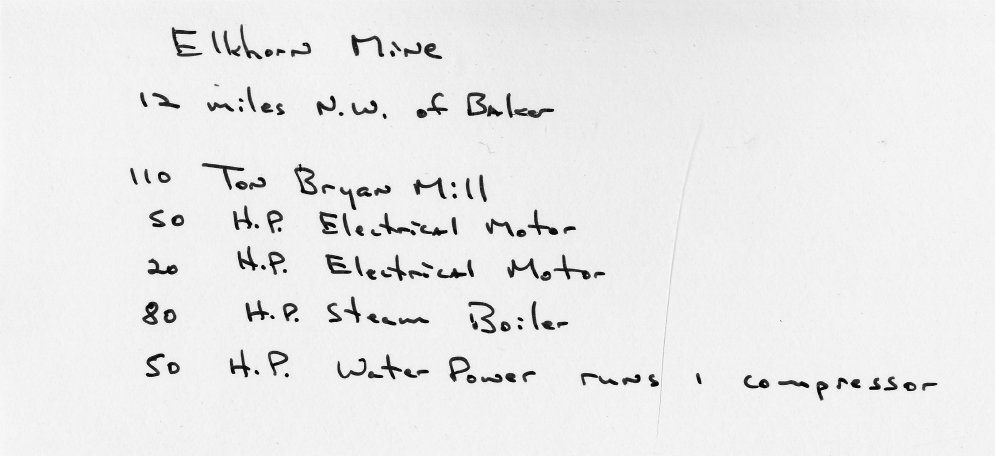 Elkhorn Mine
12 miles N.W. of Baker
110 Ton Bryan Mill
50 H.P. Electrical Motor
20 H.P. Electrical Motor
80 H.P. Steam Boiler
50 H.P. Water Power runs 1 compressor